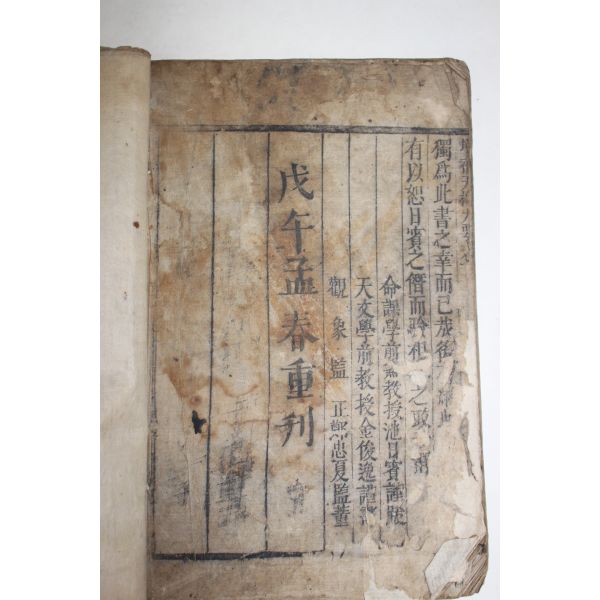 獨爲此書之幸而已哉後
有以恕日賓之僭而
命課學前教授池日賓謹跋
天文學前教授金俊逸謹
觀象監正 忠夏監董
戊午孟春重刊